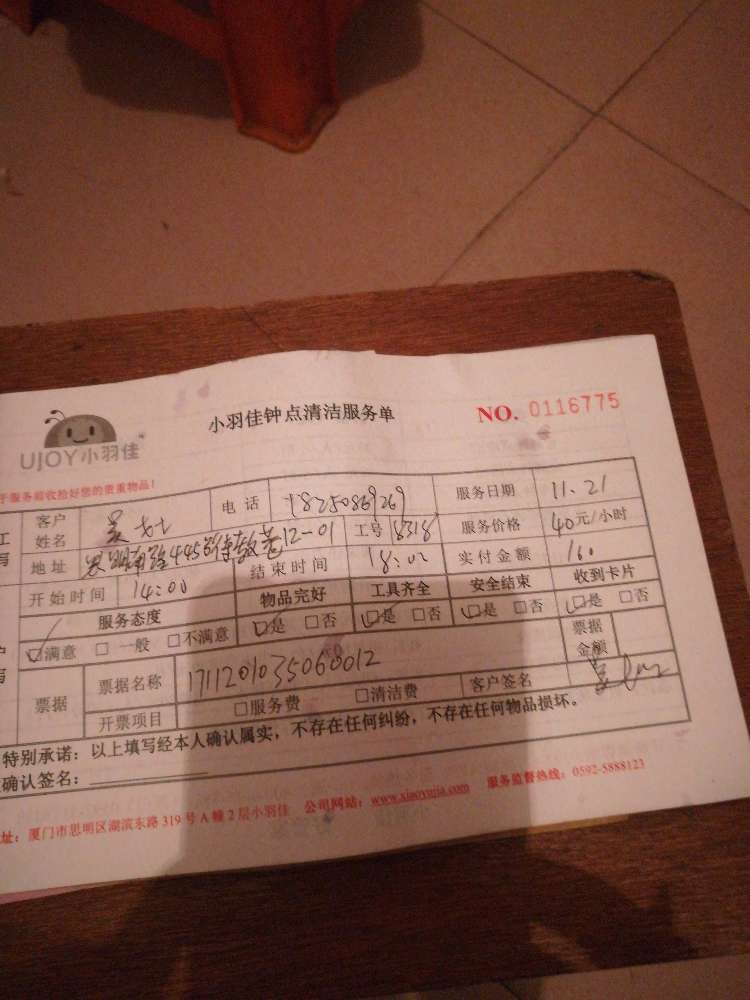 小羽佳钟点清洁服务单 NO. 0116775
UJOY小羽佳
于服务前收拾好您的贵重物品!
客户姓名 电话 18250869269 服务日期 11.21
地址 445 12-01 工号 8318 服务价格 40元/小时
开始时间 14:00 结束时间 18:00 实付金额 160
服务态度 物品完好 工具齐全 安全结束 收到卡片
□满意 □一般 □不满意 □是 □否 □是 □否 □是 □否 □是 □否
票据 票据名称 1711201035060012 票据金额
开票项目 □服务费 □清洁费 客户签名
特别承诺:以上填写经本人确认属实,不存在任何纠纷,不存在任何物品损坏。
确认签名:
址:厦门市思明区湖滨东路319号A幢2层小羽佳 公司网站:www.xiaoyujia.com 服务监督热线:0592-5888123